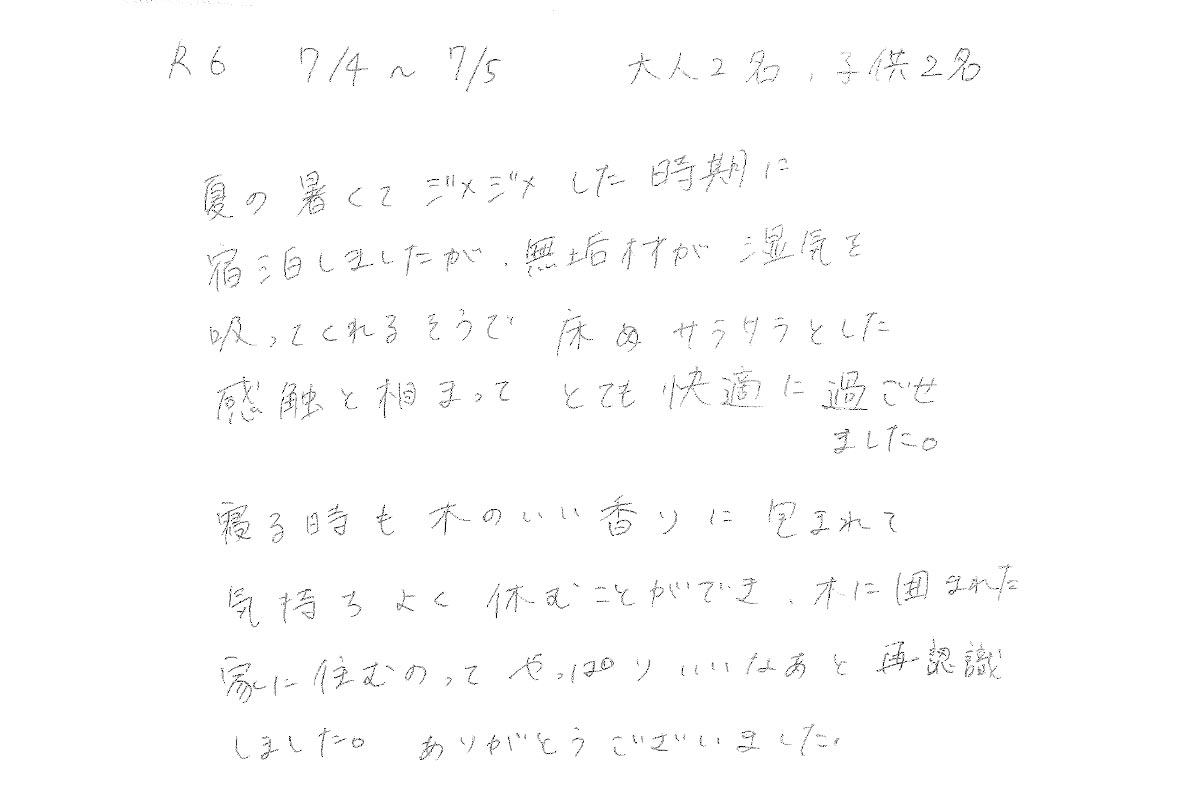 R6 7/4~7/5 大人2名、子供2名
夏の暑くてジメジメした時期に
宿泊しましたが、無垢材が湿気を
吸ってくれるそうで 床のサラサラとした
感触と相まって とても快適に過ごせ
ました。
寝る時も木のいい香りに包まれて
気持ちよく休むことができ、木に囲まれた
家に住むのって やっぱりいいなあと再認識
しました。 ありがとうございました。